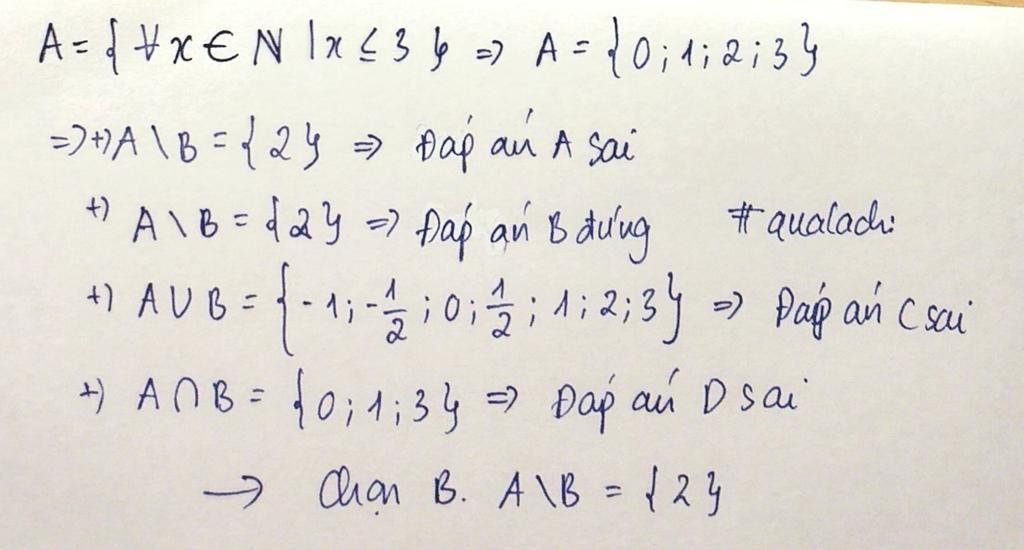 A = { ∀x ∈ N | x ≤ 3 } => A = { 0 ; 1 ; 2 ; 3 }
=> +) A \ B = { 2 } => Đáp án A sai
+) A \ B = { 2 } => Đáp án B đúng #qualach:
+) A ∪ B = { -1 ; -1/2 ; 0 ; 1/2 ; 1 ; 2 ; 3 } => Đáp án C sai
+) A ∩ B = { 0 ; 1 ; 3 } => Đáp án D sai
→ Chọn B. A \ B = { 2 }